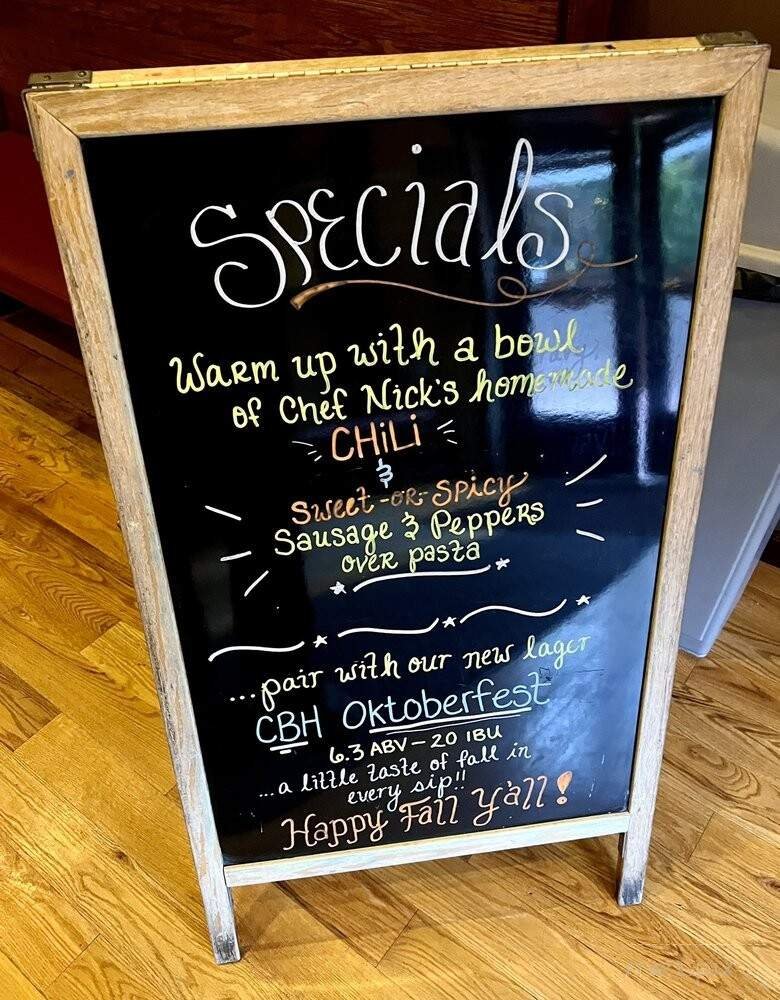 Specials
Warm up with a bowl
of Chef Nick's homemade
CHiLi
&
Sweet -or- Spicy
Sausage & Peppers
over pasta
...pair with our new lager
CBH Oktoberfest
6.3 ABV - 20 IBU
...a little taste of fall in
every sip!!
Happy Fall Y'all!